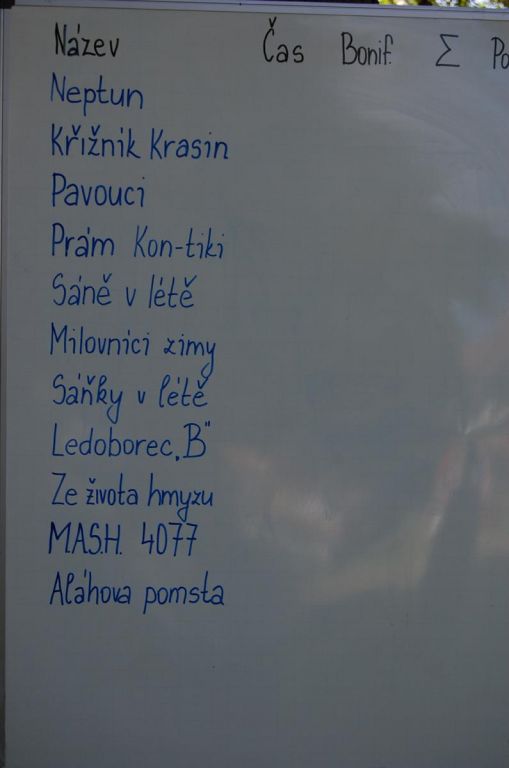 Název Čas Bonif. Σ Po
Neptun
Křižník Krasin
Pavouci
Prám Kon-tiki
Sáně v létě
Milovníci zimy
Sáňky v létě
Ledoborec „B"
Ze života hmyzu
M.A.S.H. 4077
Aláhova pomsta